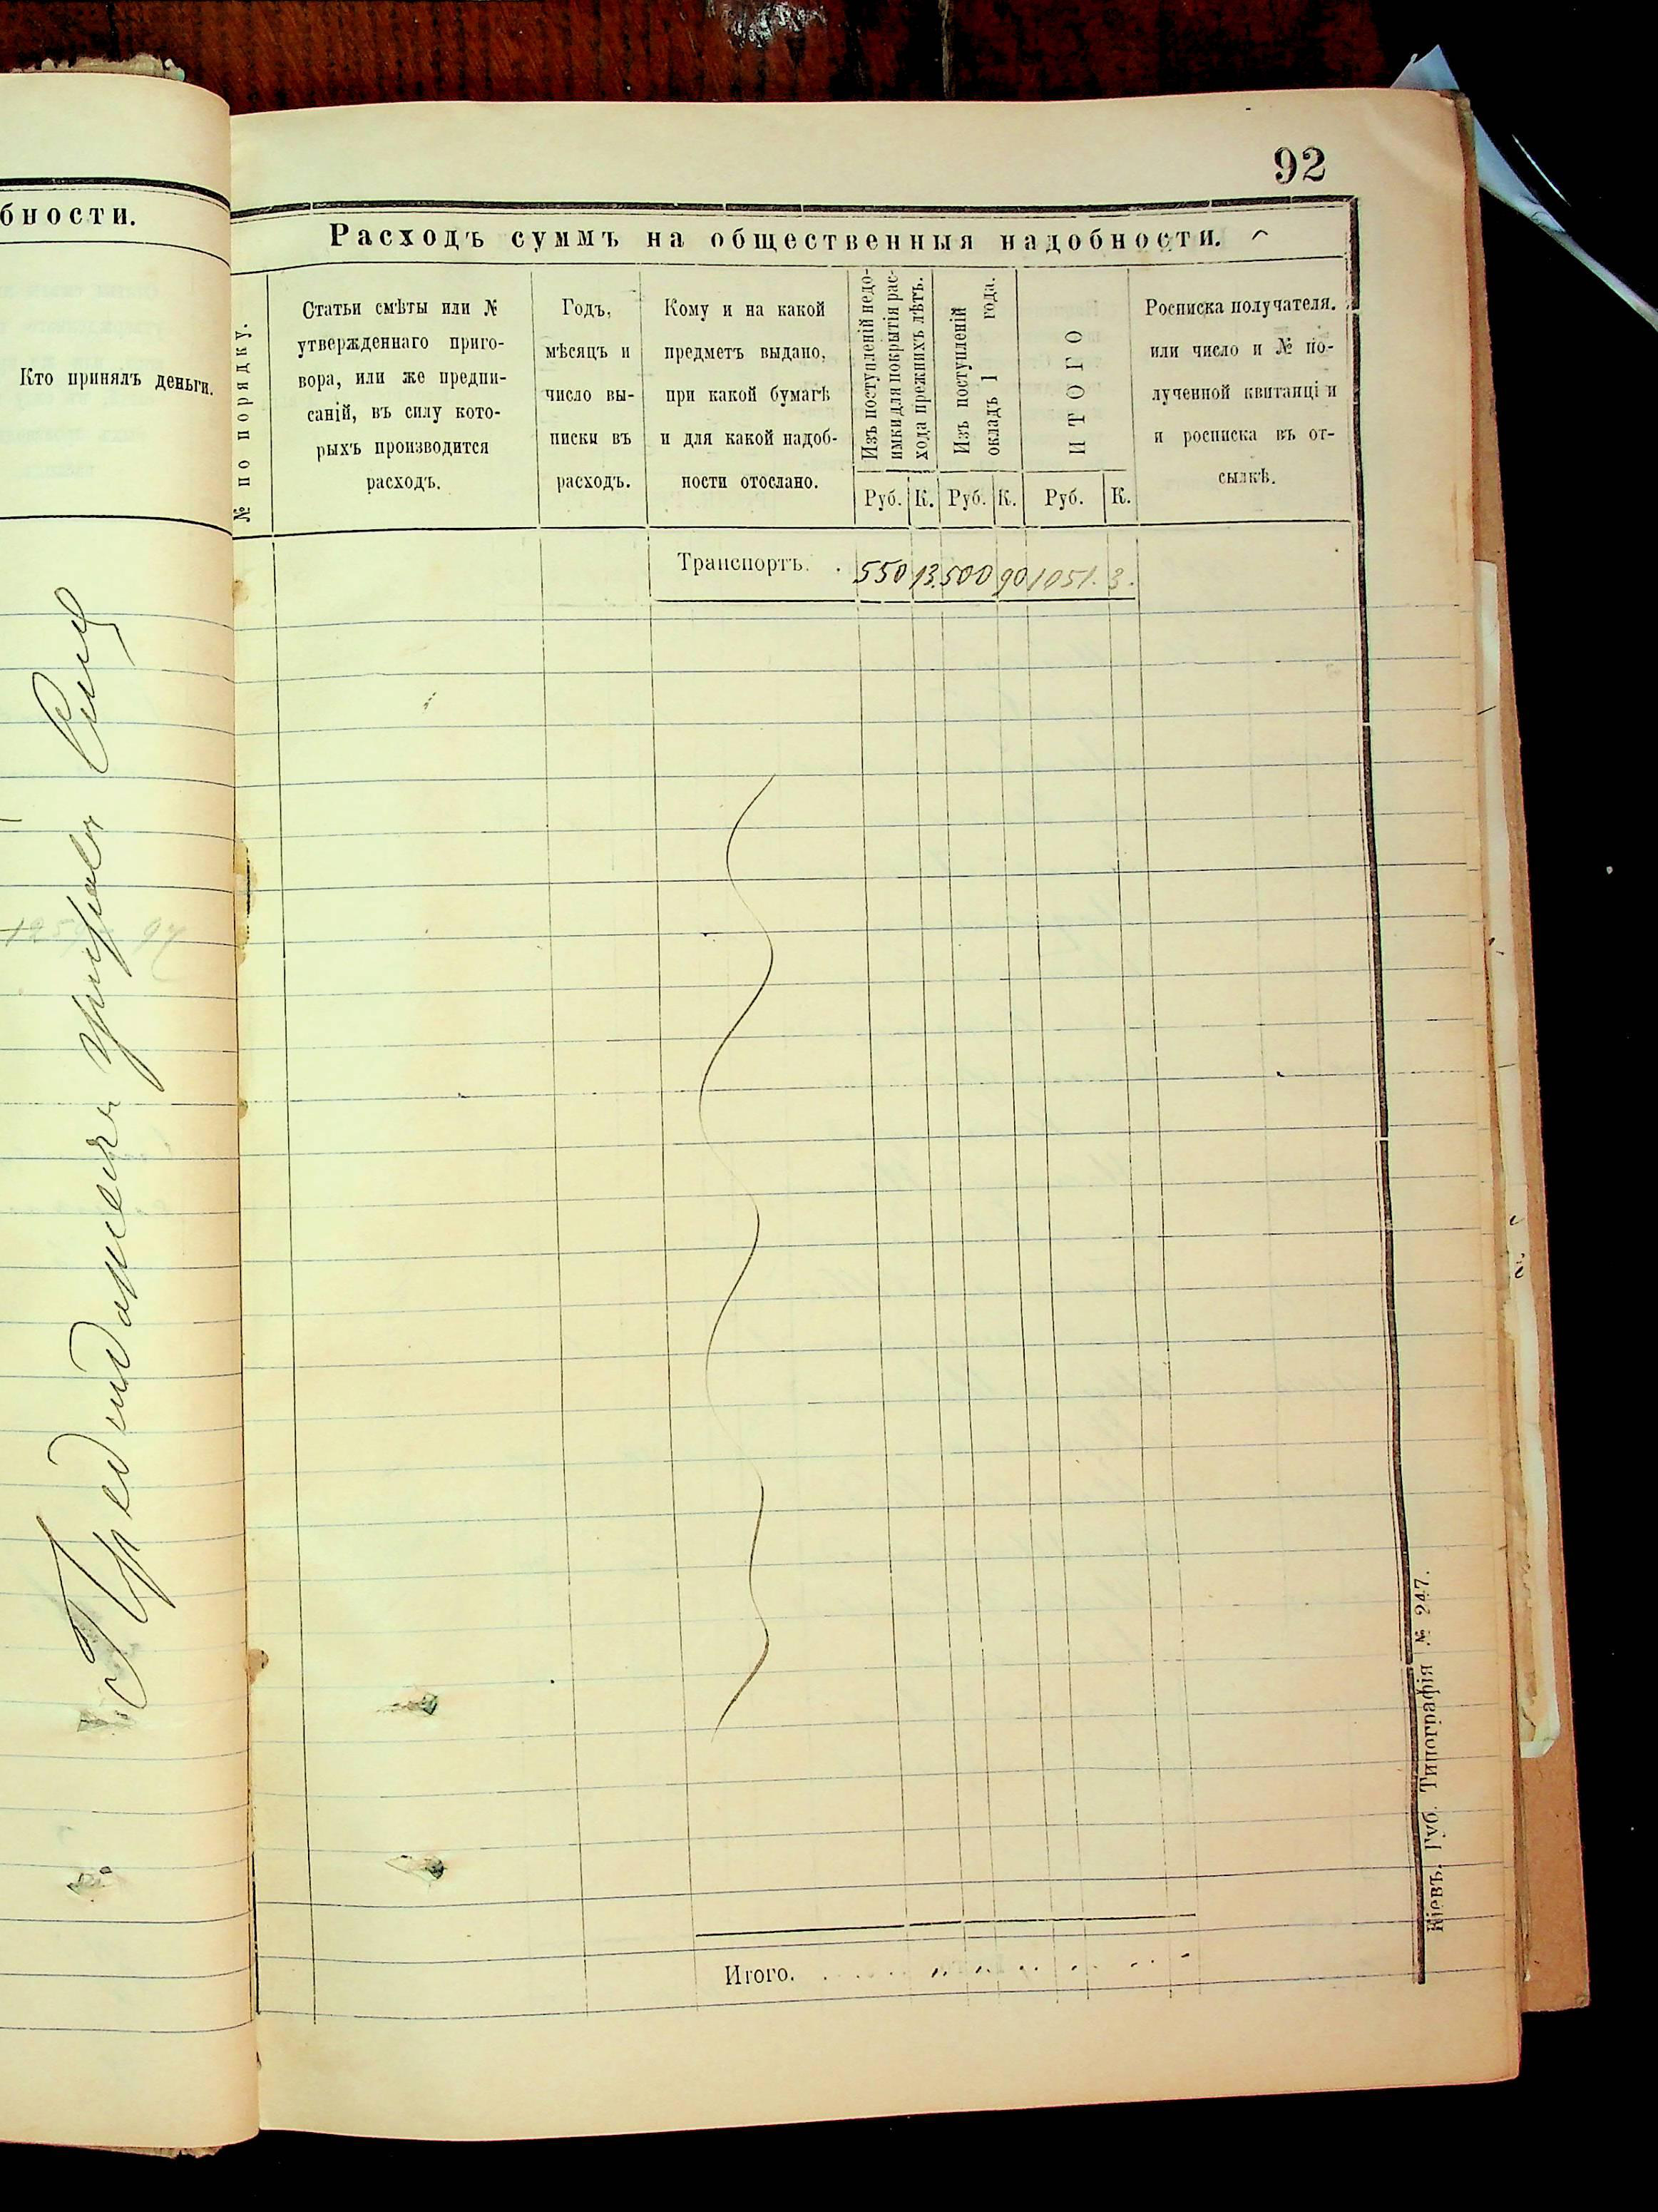 бности.
Кто принялъ деньги.
92
Расходъ суммъ на общественныя надобности.
№ по порядку.
Статьи смѣты или №
утвержденнаго приго-
вора, или же предпи-
саній, въ силу кото-
рыхъ производится
расходъ.
Годъ,
мѣсяцъ и
число вы-
писки въ
расходъ.
Кому и на какой
предметъ выдано,
при какой бумагѣ
и для какой надоб-
ности отослано.
Изъ поступленій недо-
имки для покрытія рас-
хода прежнихъ лѣтъ.
Изъ поступленій
окладъ 1 года.
ИТОГО
Руб. К. Руб. К. Руб. К.
Росписка получателя.
или число и № по-
лученной квитанціи
и росписка въ от-
сылкѣ.
Транспортъ. . 550 13. 500 90 1051. 3.
Итого.
Кіевъ. Губ. Типографія № 247.